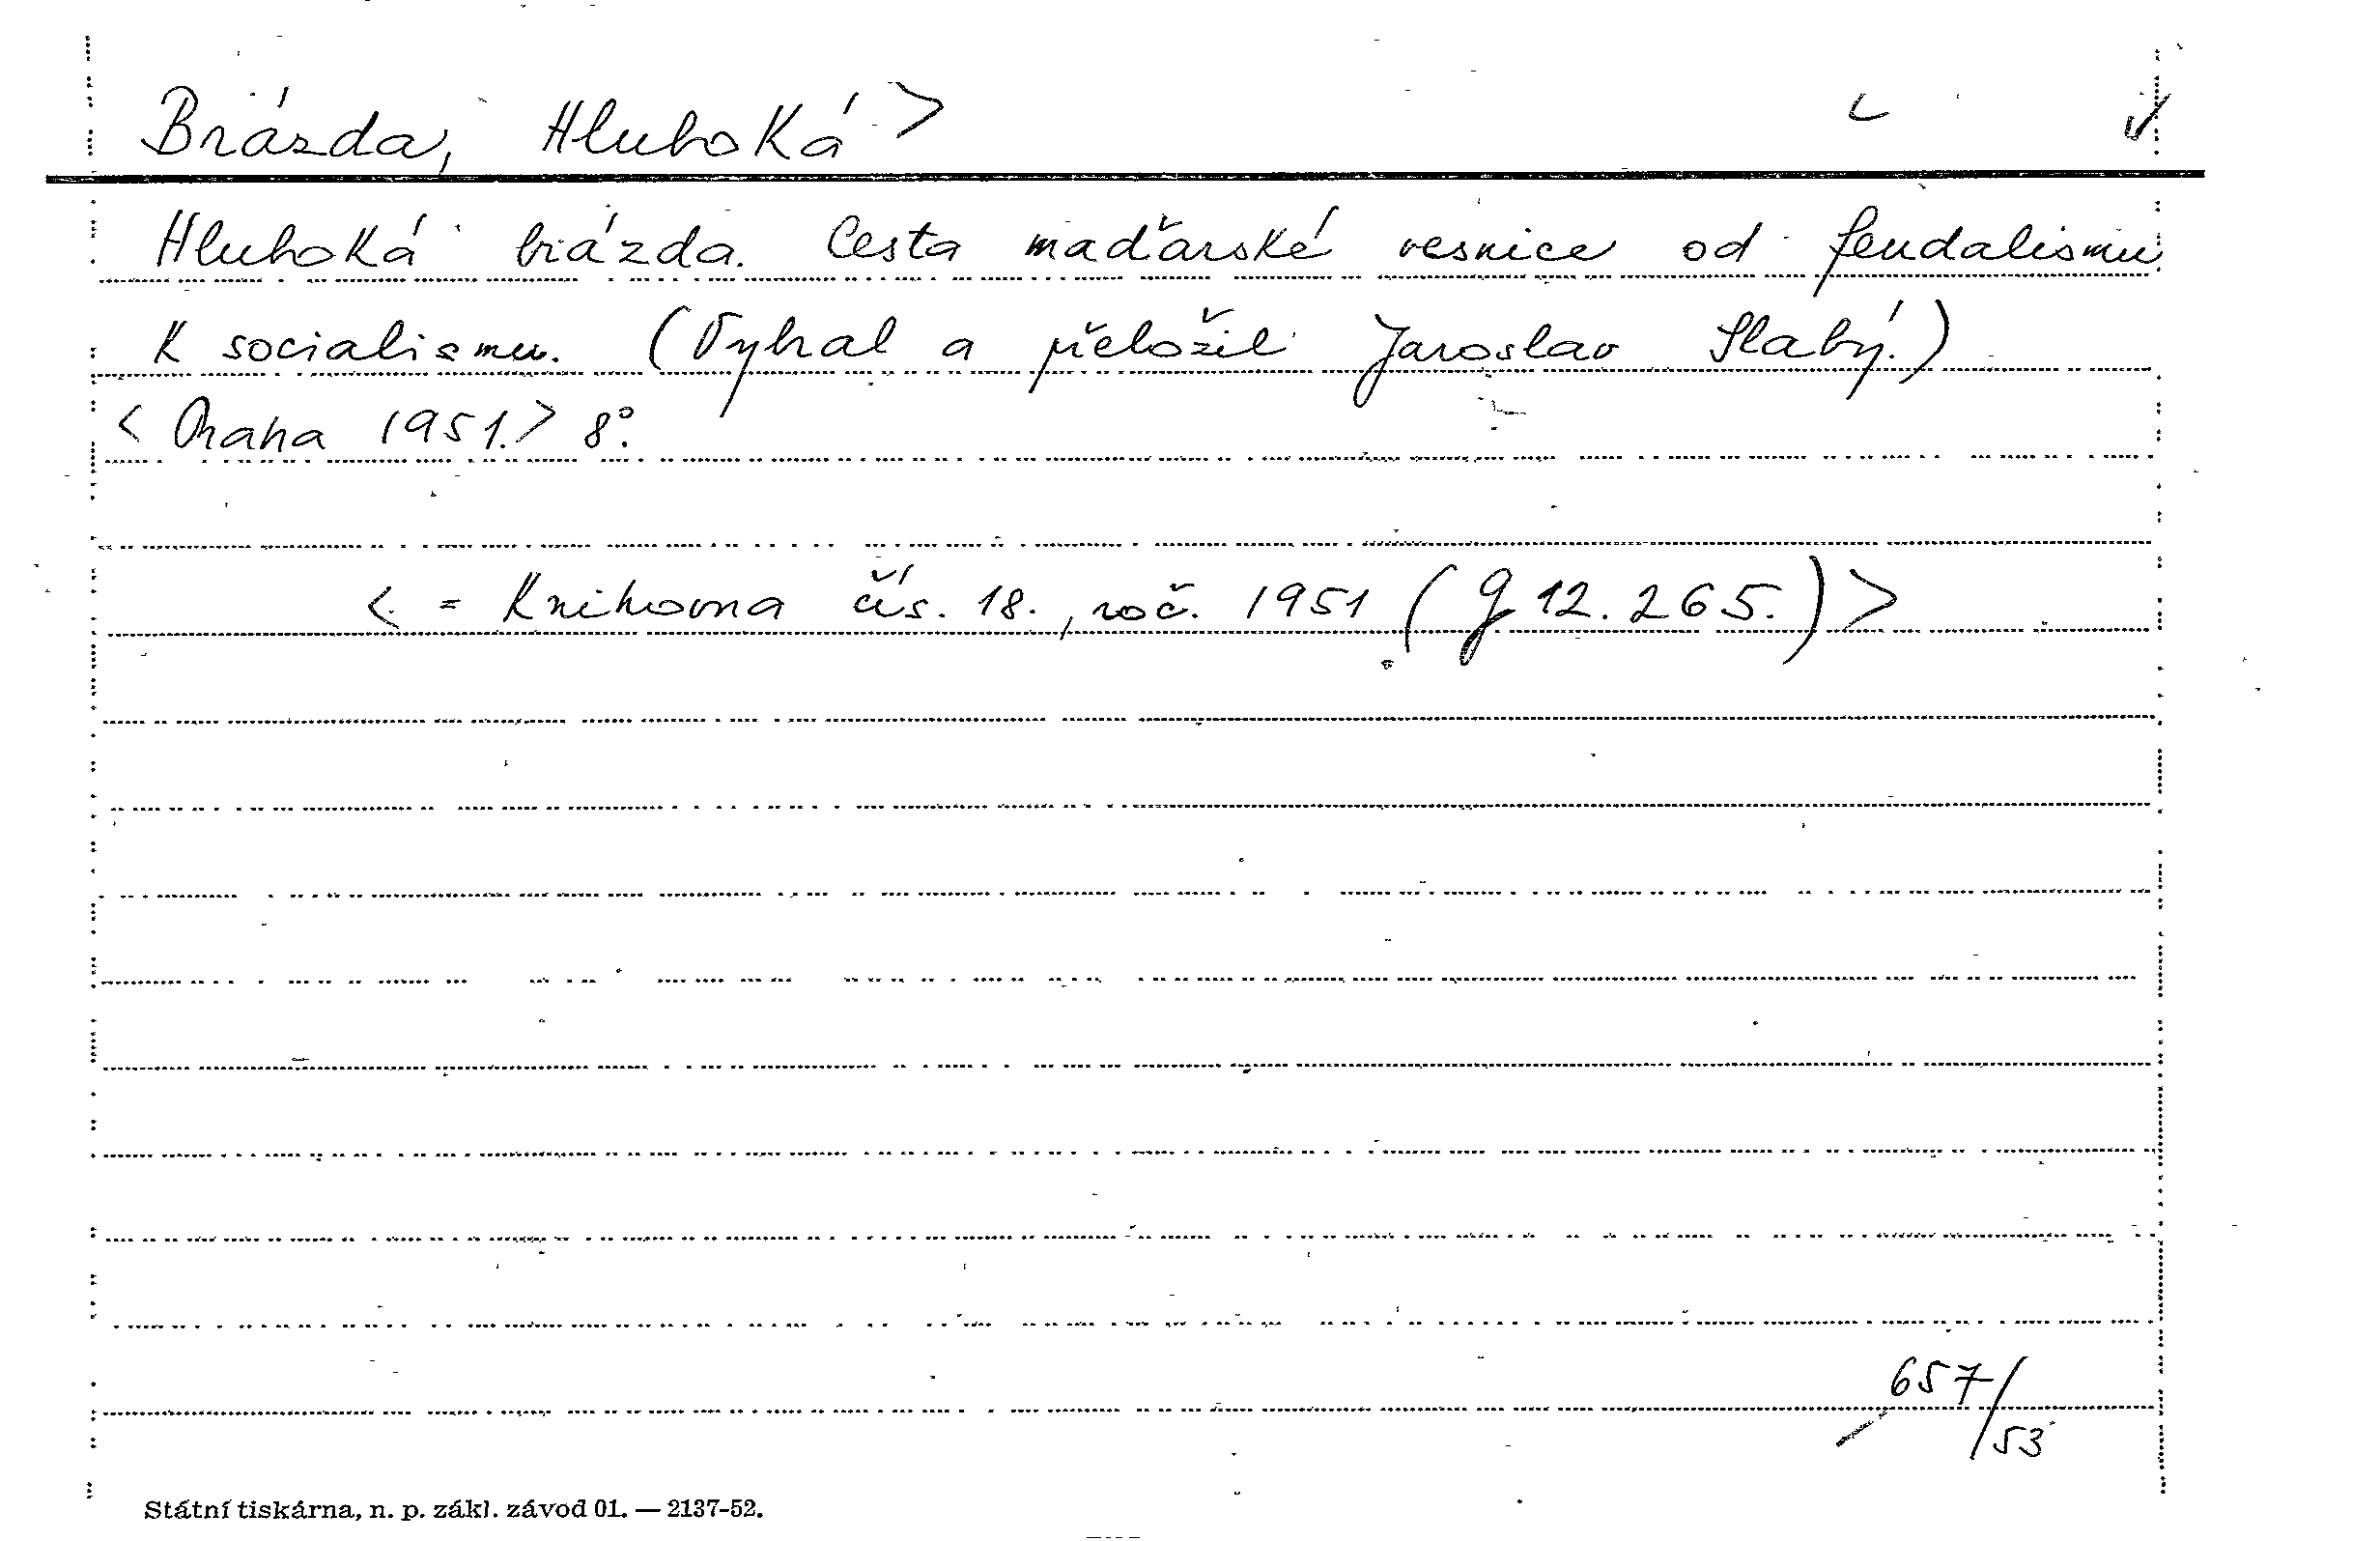 Brázda, Hluboká >
Hluboká brázda. Cesta maďarské vesnice od feudalismu
k socialismu. (Vybral a přeložil Jaroslav Slabý.)
< Praha 1951.> 8°.
< = Knihovna čís. 18., roč. 1951 (g 12.265.) >
657/53
Státní tiskárna, n. p. zákl. závod 01. — 2137-52.